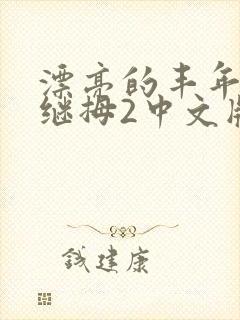 漂亮的丰年
继拇2中文版
钱建康